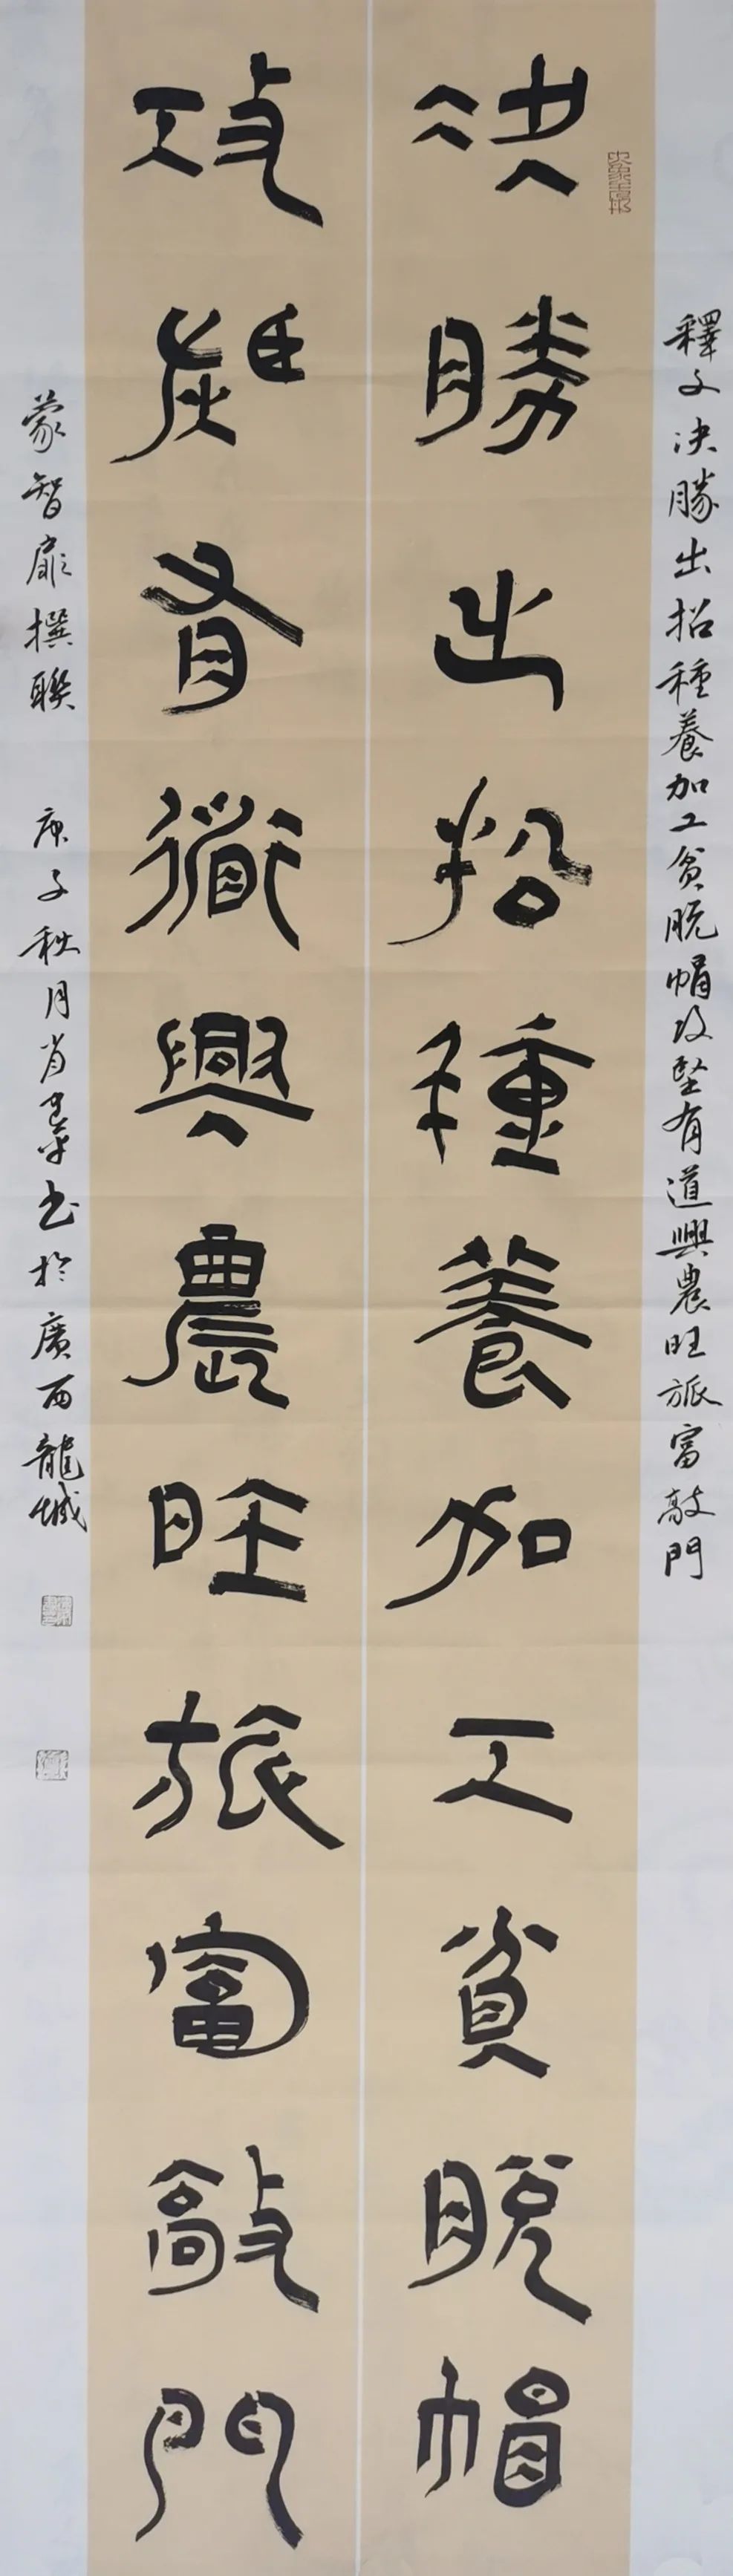 釋文決勝出招種養加工貧脱帽攻堅有道興農旺旅富敲門
決勝出招種養加工貧脱帽
攻堅有道興農旺旅富敲門
蒙智扉撰聯 庚子秋月肖書於廣西龍城